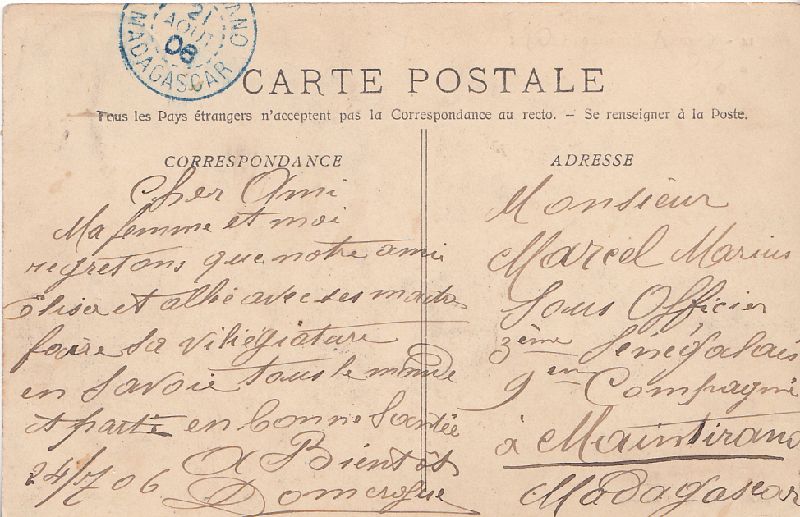 21
AOUT
06
MADAGASCAR
CARTE POSTALE
Tous les Pays étrangers n'acceptent pas la Correspondance au recto. – Se renseigner à la Poste.
CORRESPONDANCE
Cher Ami
Ma femme et moi
regretons que notre amie
Elisa et allié avec ses
faire sa villégiature
en Savoie tous le monde
et parti en bonne Santée
A Bientôt
24/7 06 Domergue
ADRESSE
Monsieur
Marcel Marius
Sous Officier
3ème Sénégalais
9em Compagnie
à Maintirano
Madagascar